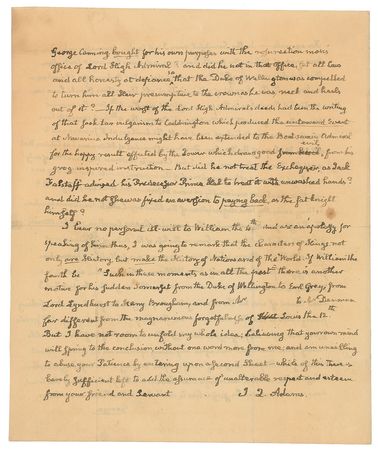 George Canning bought for his own purposes with the resurrection mors
office of Lord High Admiral? and did he not in that office, set all laws
and all honesty at defiance so that the Duke of Wellington was compelled
to turn him all Heir presumptive to the crown as he was neck and heels
out of it? If the worst of the Lord High Admiral's deeds had been the writing
of that Jack tar vulgarism to Codrington which produced the untoward Event
at Navarino Indulgence might have been extended to the Boatswain Admiral
for the happy result effected by the Power which draws good from evil, from his
grog inspired instruction. But did he not treat the Exchequer, as Jack
Falstaff advised his Predecessor Prince Hal to treat it with unwashed hands?
and did he not shew as fixed an aversion to paying back, as the fat knight
himself?
I bear no personal ill-will to William the 4th and owe an apology for
speaking of him thus, I was going to remark that the characters of Kings not
only are History, but make the History of Nations and of the World. If William the
fourth be such in these moments, as in all the past there is another
motive for his sudden Somerset from the Duke of Wellington to Earl Grey, from
Lord Lyndhurst to Henry Brougham, and from Mr to Mr Denman
far different from the magnanimous forgetfulness of Louis the 12th
But I have not room to unfold my whole idea, believing that your own mind
will spring to the conclusion without one word more from me; and am unwilling
to abuse your Patience by entering upon a second Sheet—while of this there is
barely sufficient left to add the assurance of unalterable respect and esteem
from your friend and Servant J. Q. Adams.